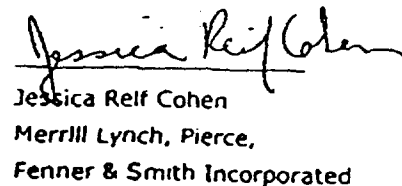 Jessica Reif Cohen
Jessica Reif Cohen
Merrill Lynch, Pierce,
Fenner & Smith Incorporated